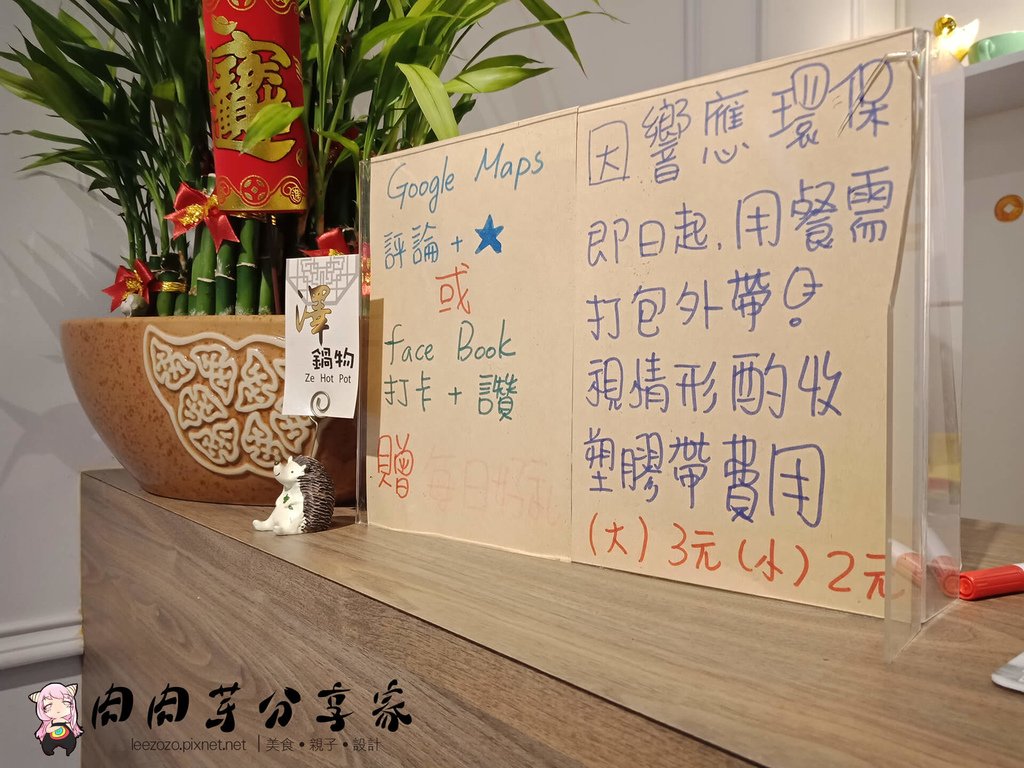 澤
鍋物
Ze Hot Pot
Google Maps
評論+★
或
face Book
打卡+讚
贈
每日
因響應環保
即日起,用餐需
打包外帶。
視情形酌收
塑膠帶費用
(大)3元(小)2元
肉肉芽分享家
leezozo.pixnet.net | 美食•親子•設計